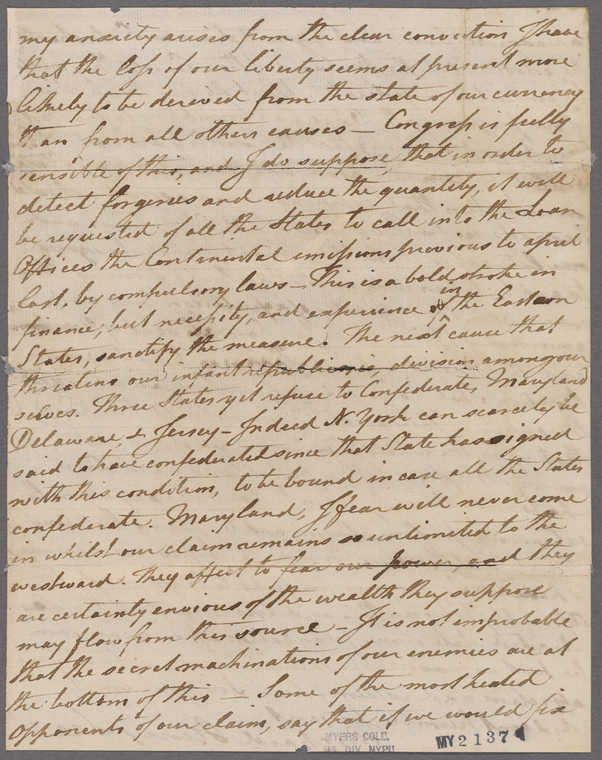 my anxiety arises from the clear conviction I have
that the loss of our liberty seems at present more
likely to be derived from the state of our currency
than from all other causes — Congress is fully
sensible of this, and I do suppose, that in order to
detect forgeries and reduce the quantity, it will
be requested of all the States to call into the Loan
Offices the Continental emissions previous to april
last, by compulsory laws — This is a bold stroke in
finance, but necessity, and experience in the Eastern
States, sanctify the measure. The next cause that
threatens our infant republic is, division among our
selves. Three States yet refuse to Confederate, Maryland
Delaware & Jersey — Indeed N. York can scarcely be
said to have confederated since that State has signed
with this condition, to be bound in case all the States
confederate. Maryland, I fear will never come
in whilst our claim remains so unlimited to the
westward. They affect to fear our power, and they
are certainly envious of the wealth they suppose
may flow from this source — It is not improbable
that the secret machinations of our enemies are at
the bottom of this — Some of the most heated
Opponents of our claim, say that if we would fix
MYERS COLL.
MS. DIV. NYPL
MY 2137